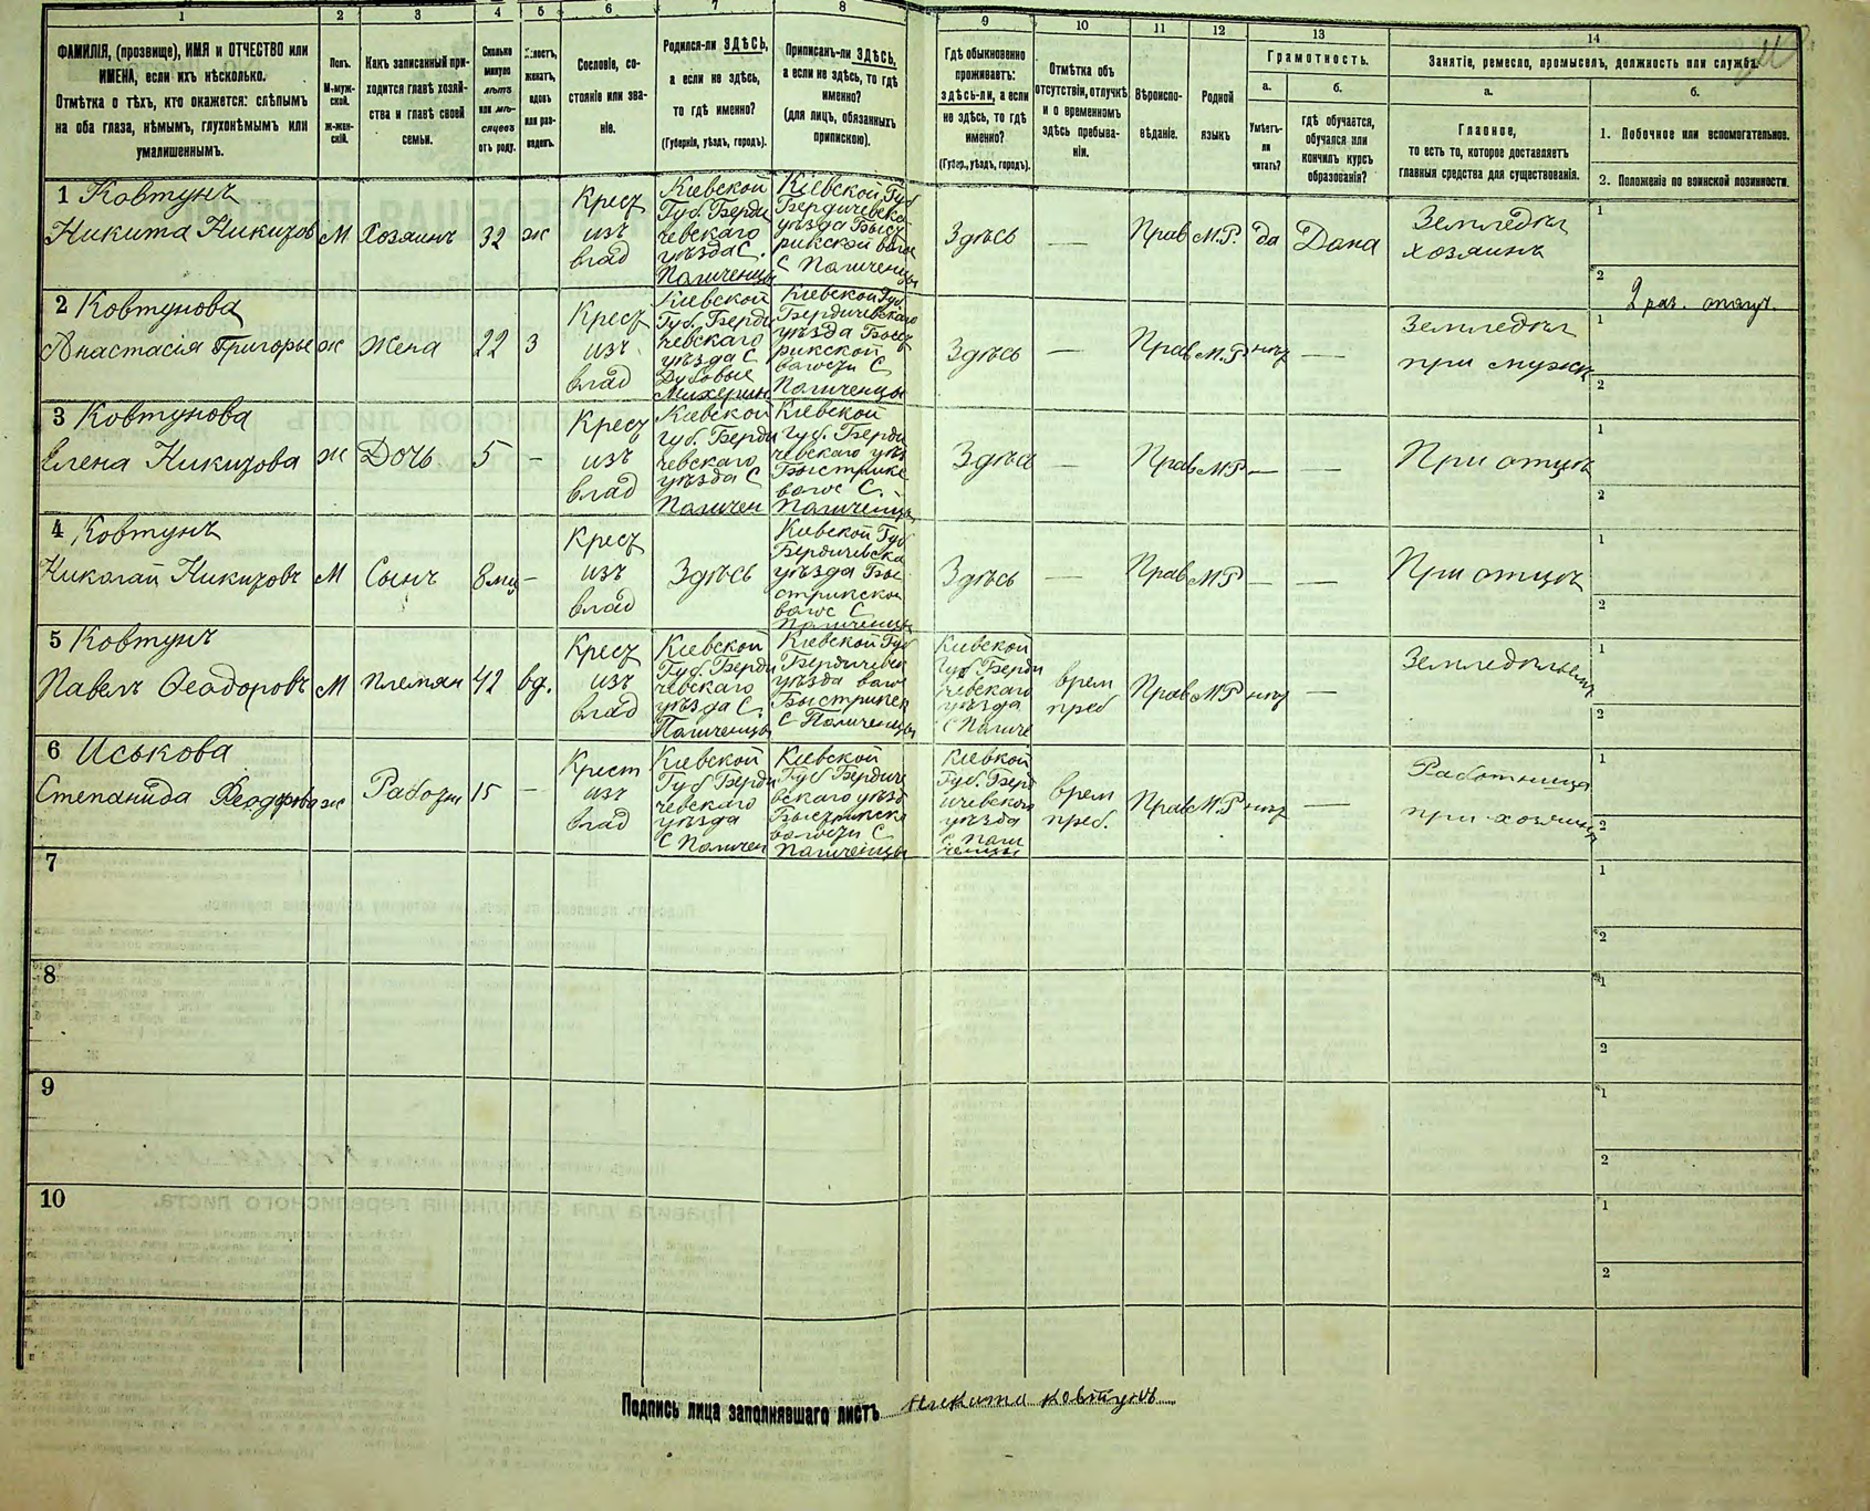 1 2 3 4 5 6 7 8 9 10 11 12 13 14
ФАМИЛІЯ, (прозвище), ИМЯ и ОТЧЕСТВО или
ИМЕНА, если ихъ нѣсколько.
Отмѣтка о тѣхъ, кто окажется: слѣпымъ
на оба глаза, нѣмымъ, глухонѣмымъ или
умалишеннымъ.
Полъ.
М-муж-
ской.
ж-жен-
скій.
Какъ записанный при-
ходится главѣ хозяй-
ства и главѣ своей
семьи.
Сколько
минуло
лѣтъ
или мѣ-
сяцевъ
отъ роду.
Холостъ,
женатъ,
вдовъ
или раз-
веденъ.
Сословіе, со-
стояніе или зва-
ніе.
Родился-ли ЗДѢСЬ,
а если не здѣсь,
то гдѣ именно?
(Губернія, уѣздъ, городъ).
Приписанъ-ли ЗДѢСЬ,
а если не здѣсь, то гдѣ
именно?
(для лицъ, обязанныхъ
припискою).
Гдѣ обыкновенно
проживаетъ:
здѣсь-ли, а если
не здѣсь, то гдѣ
именно?
(Губер., уѣздъ, городъ).
Отмѣтка объ
отсутствіи, отлучкѣ
и о временномъ
здѣсь пребыва-
ніи.
Вѣроиспо-
вѣданіе.
Родной
языкъ
Грамотность.
а.
Умѣетъ-
ли
читать?
б.
гдѣ обучается,
обучался или
кончилъ курсъ
образованія?
Занятіе, ремесло, промыселъ, должность или служба.
а.
Главное,
то есть то, которое доставляетъ
главныя средства для существованія.
б.
1. Побочное или вспомогательное.
2. Положеніе по воинской повинности.
1 Ковтунъ
Никита Никитов
М
Хозяинъ
32
ж
Крест
изъ
влад
Кіевской
Губ. Берди
чевскаго
уѣзда С.
Паличенцы
Кіевской Губ
Бердичевска
уѣзда Быст
рикской волос
С Паличенцы
Здѣсь
—
Прав
М.Р.
да
Дома
Земледѣл
хозяинъ
1
2
2 раз.
2 Ковтунова
Анастасія Григорье
ж
Жена
22
З
Крест
изъ
влад
Кіевской
Губ. Берди
чевскаго
уѣзда С
Дубовые
Махерин
Кіевской Губ
Бердичевскаго
уѣзда Быст
рикской
волости С
Паличенцы
Здѣсь
—
Прав
М.Р
нѣт
—
Земледѣл
при мужѣ
1
2
3 Ковтунова
Елена Никитова
ж
Дочь
5
-
Крест
изъ
влад
Кіевской
губ. Берди
чевскаго
уѣзда С
Паличен
Кіевской
губ. Берди
чевскаго уѣз
Быстрикс
волос С.
Паличенцы
Здѣсь
—
Прав
М.Р
—
—
При отцѣ
1
2
4 Ковтунъ
Николай Никитовъ
М
Сынъ
8 мц
-
Крест
изъ
влад
Здѣсь
Кіевской Губ
Бердичевска
уѣзда Бы
стрикской
волос С
Паличенцы
Здѣсь
—
Прав
М.Р
—
—
При отцѣ
1
2
5 Ковтунъ
Павелъ Ѳеодоровъ
М
Племян
42
вд.
Крест
изъ
влад
Кіевской
Губ. Берди
чевскаго
уѣзда С.
Паличенцы
Кіевской Губ
Бердичевск
уѣзда воло
Быстрикск
С Паличенцы
Кіевской
Губ Берди
чевскаго
уѣзда
С Паличе
врем
преб
Прав
М.Р
нѣт
—
Земледѣлецъ
1
2
6 Иськова
Степанида Ѳеодорова
ж
Работн
15
-
Крест
изъ
влад
Кіевской
Губ Берди
чевскаго
уѣзда
С Паличен
Кіевской
Губ Бердиче
вскаго уѣзд
Быстрикско
волости С
Паличенцы
Кіевкой
Губ. Берд
ичевскаго
уѣзда
С Пали
ченцы
врем
преб.
Прав
М.Р
нѣт
—
Работница
при хозяинѣ
1
2
7
1
2
8
1
2
9
1
2
10
1
2
Подпись лица заполнявшаго листъ Никита Ковтунъ